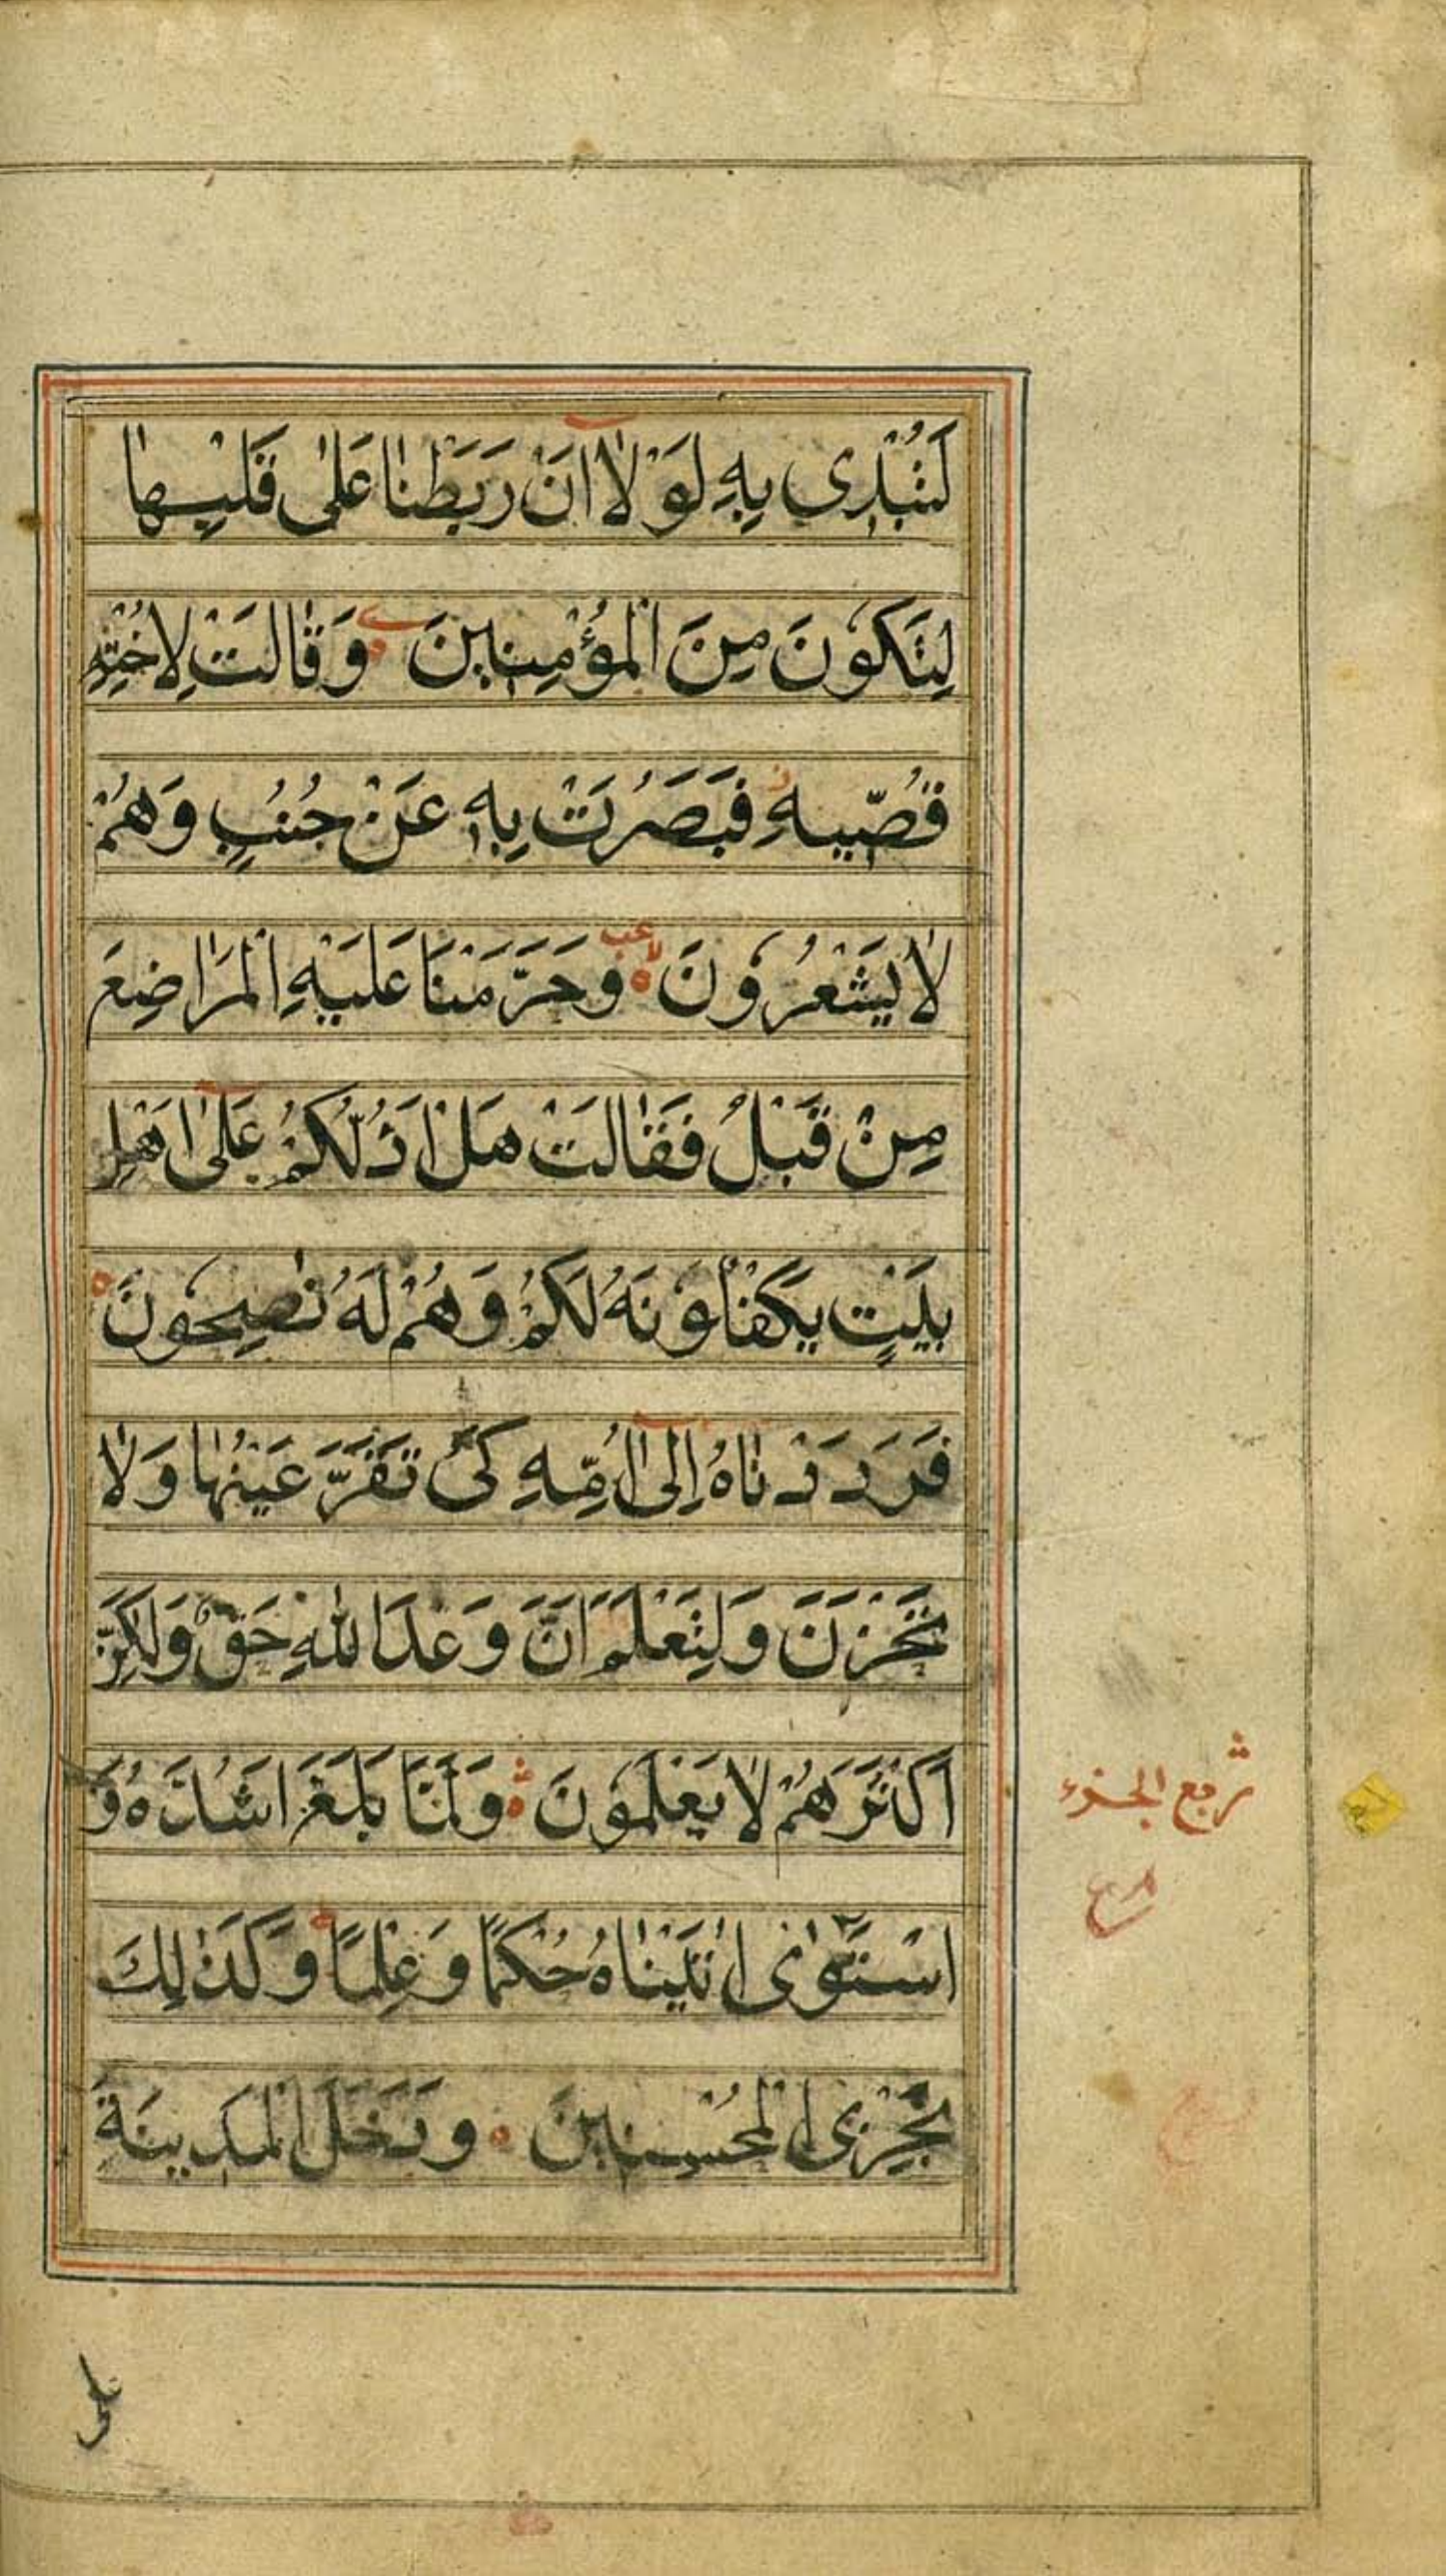 لَتُبْدِی بِهِ لَوْلَاۤ اَنْ رَبَطْنَا عَلٰی قَلْبِهَا
لِتَكُوْنَ مِنَ الْمُؤْمِنِیْنَ وَقَالَتْ لِاُخْتِهٖ
قُصِّیْهِ فَبَصُرَتْ بِهٖ عَنْ جُنُبٍ وَهُمْ
لَا یَشْعُرُوْنَ وَحَرَّمْنَا عَلَیْهِ الْمَرَاضِعَ
مِنْ قَبْلُ فَقَالَتْ هَلْ اَدُلُّكُمْ عَلٰۤی اَهْلِ
بَیْتٍ یَكْفُلُوْنَهُ لَكُمْ وَهُمْ لَهُ نٰصِحُوْنَ
فَرَدَدْنَاهُ اِلٰۤی اُمِّهِ كَیْ تَقَرَّ عَیْنُهَا وَلَا
تَحْزَنَ وَلِتَعْلَمَ اَنَّ وَعْدَ اللّٰهِ حَقٌّ وَلٰكِنَّ
اَكْثَرَهُمْ لَا یَعْلَمُوْنَ وَلَمَّا بَلَغَ اَشُدَّهُ وَ
ربع الجزء
اسْتَوٰی اٰتَیْنَاهُ حُكْمًا وَعِلْمًا وَكَذٰلِكَ
نَجْزِی الْمُحْسِنِیْنَ وَدَخَلَ الْمَدِیْنَةَ
علی